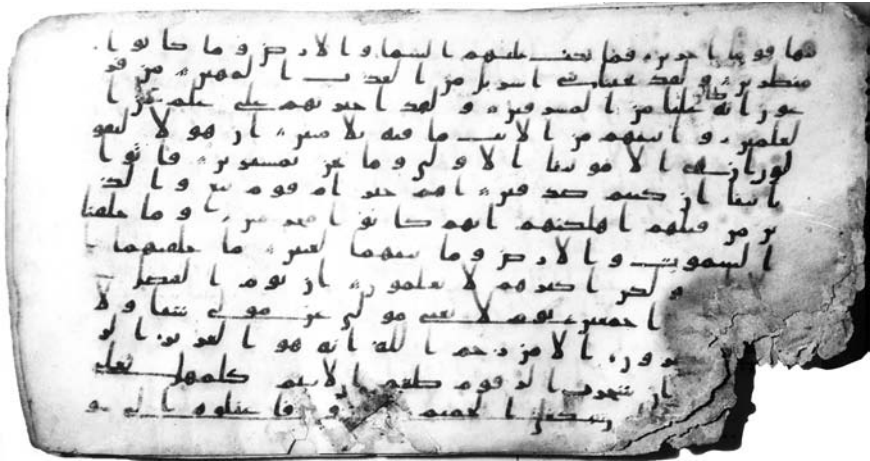 ها قوما اخرين فما بكت عليهم السما والارض وما كانوا
منظرين ولقد نجينا بني اسريل من العذاب المهين من فر
عون انه كان عليا من المسرفين ولقد اخترنهم على علم على ا
لعلمين واتينهم من الايت ما فيه بلا مبين ان هولا ليقو
لون ان هي الا موتتنا الاولى وما نحن بمنشرين فاتوا
بابينا ان كنتم صدقين اهم خير ام قوم تبع والذ
ين من قبلهم اهلكنهم انهم كانوا مجرمين وما خلقنا
السموت والارض وما بينهما لعبين ما خلقنهما
ولكن اكثرهم لا يعلمون ان يوم الفصل
اجمعين يوم لا يغني مولى عن مولى شيا ولا
رون الا من رحم الله انه هو العزيز الر
ان شجرت الزقوم طعم الاثيم كالمهل يغلي
الحميم فاعتلوه الى سو